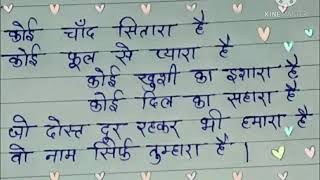 KINEMASTER
कोई चाँद सितारा है
कोई फूल से प्यारा है
कोई खुशी का इशारा है
कोई दिल का सहारा है
जो दोस्त दूर रहकर भी हमारा है
वो नाम सिर्फ तुम्हारा है ।